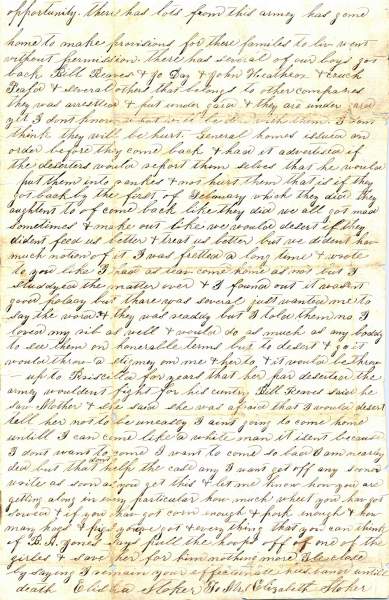 opportunity. there has lots from this army has gone
home to make provisions for there familes to liv went
without permission. there has several of our boys got
back Bill Reaves & Jo Day & John &
& several others that belongs to other companies
they was arrested & put under gard & they are under gard
yet I dont know what will be don with them. I dont
think they will be hurt. General homes issued an
order before they come back & had it advertised if
the deserters would report them selves that he would
put them into ranks & not hurt them that is if they
got back by the first of February which they did they
aughtent to of come back like they did we all got mad
sometimes & make out like we would desert if they
dident feed us better & treat us better but we dident hav
much notion of it. I was fretted a long time & wrote
to you like I had as leav come home as not but I
studdyed the matter over & I found out it wasent
good polacy but thare was several just wanted me to
say the word & they was ready but I told them no I
loved my rib as well & would do as much as any boddy
to see them on honerable terms but to desert & go it
would throw a stigmy on me & her to & it would be throw
up to Priscilla for years that her pap deserted the
army wouldent fight for his cuntry Bill Reaves said he
saw Mother & she said she was afraid that I would desert
tell her not to be uneasy I aint going to come home
untill I can come like a white man it ident because
I dont want to come I want to come so bad I am nearly
ded but that dont help the case any I wont get off any sooner
write as soon as you get this & let me know how you are
getting along in every particular how much wheet you hav got
sowed & if you hav got corn enough & pork enough & how
many hogs & pigs youve got & every thing that you can think
of B. A. jones says pull the hoops off of one of the
girles & save her for him nothing more Ile close
by saying I remain your affectionate husband untill
death Elisha Stoker To Mrs Elizabeth Stoker